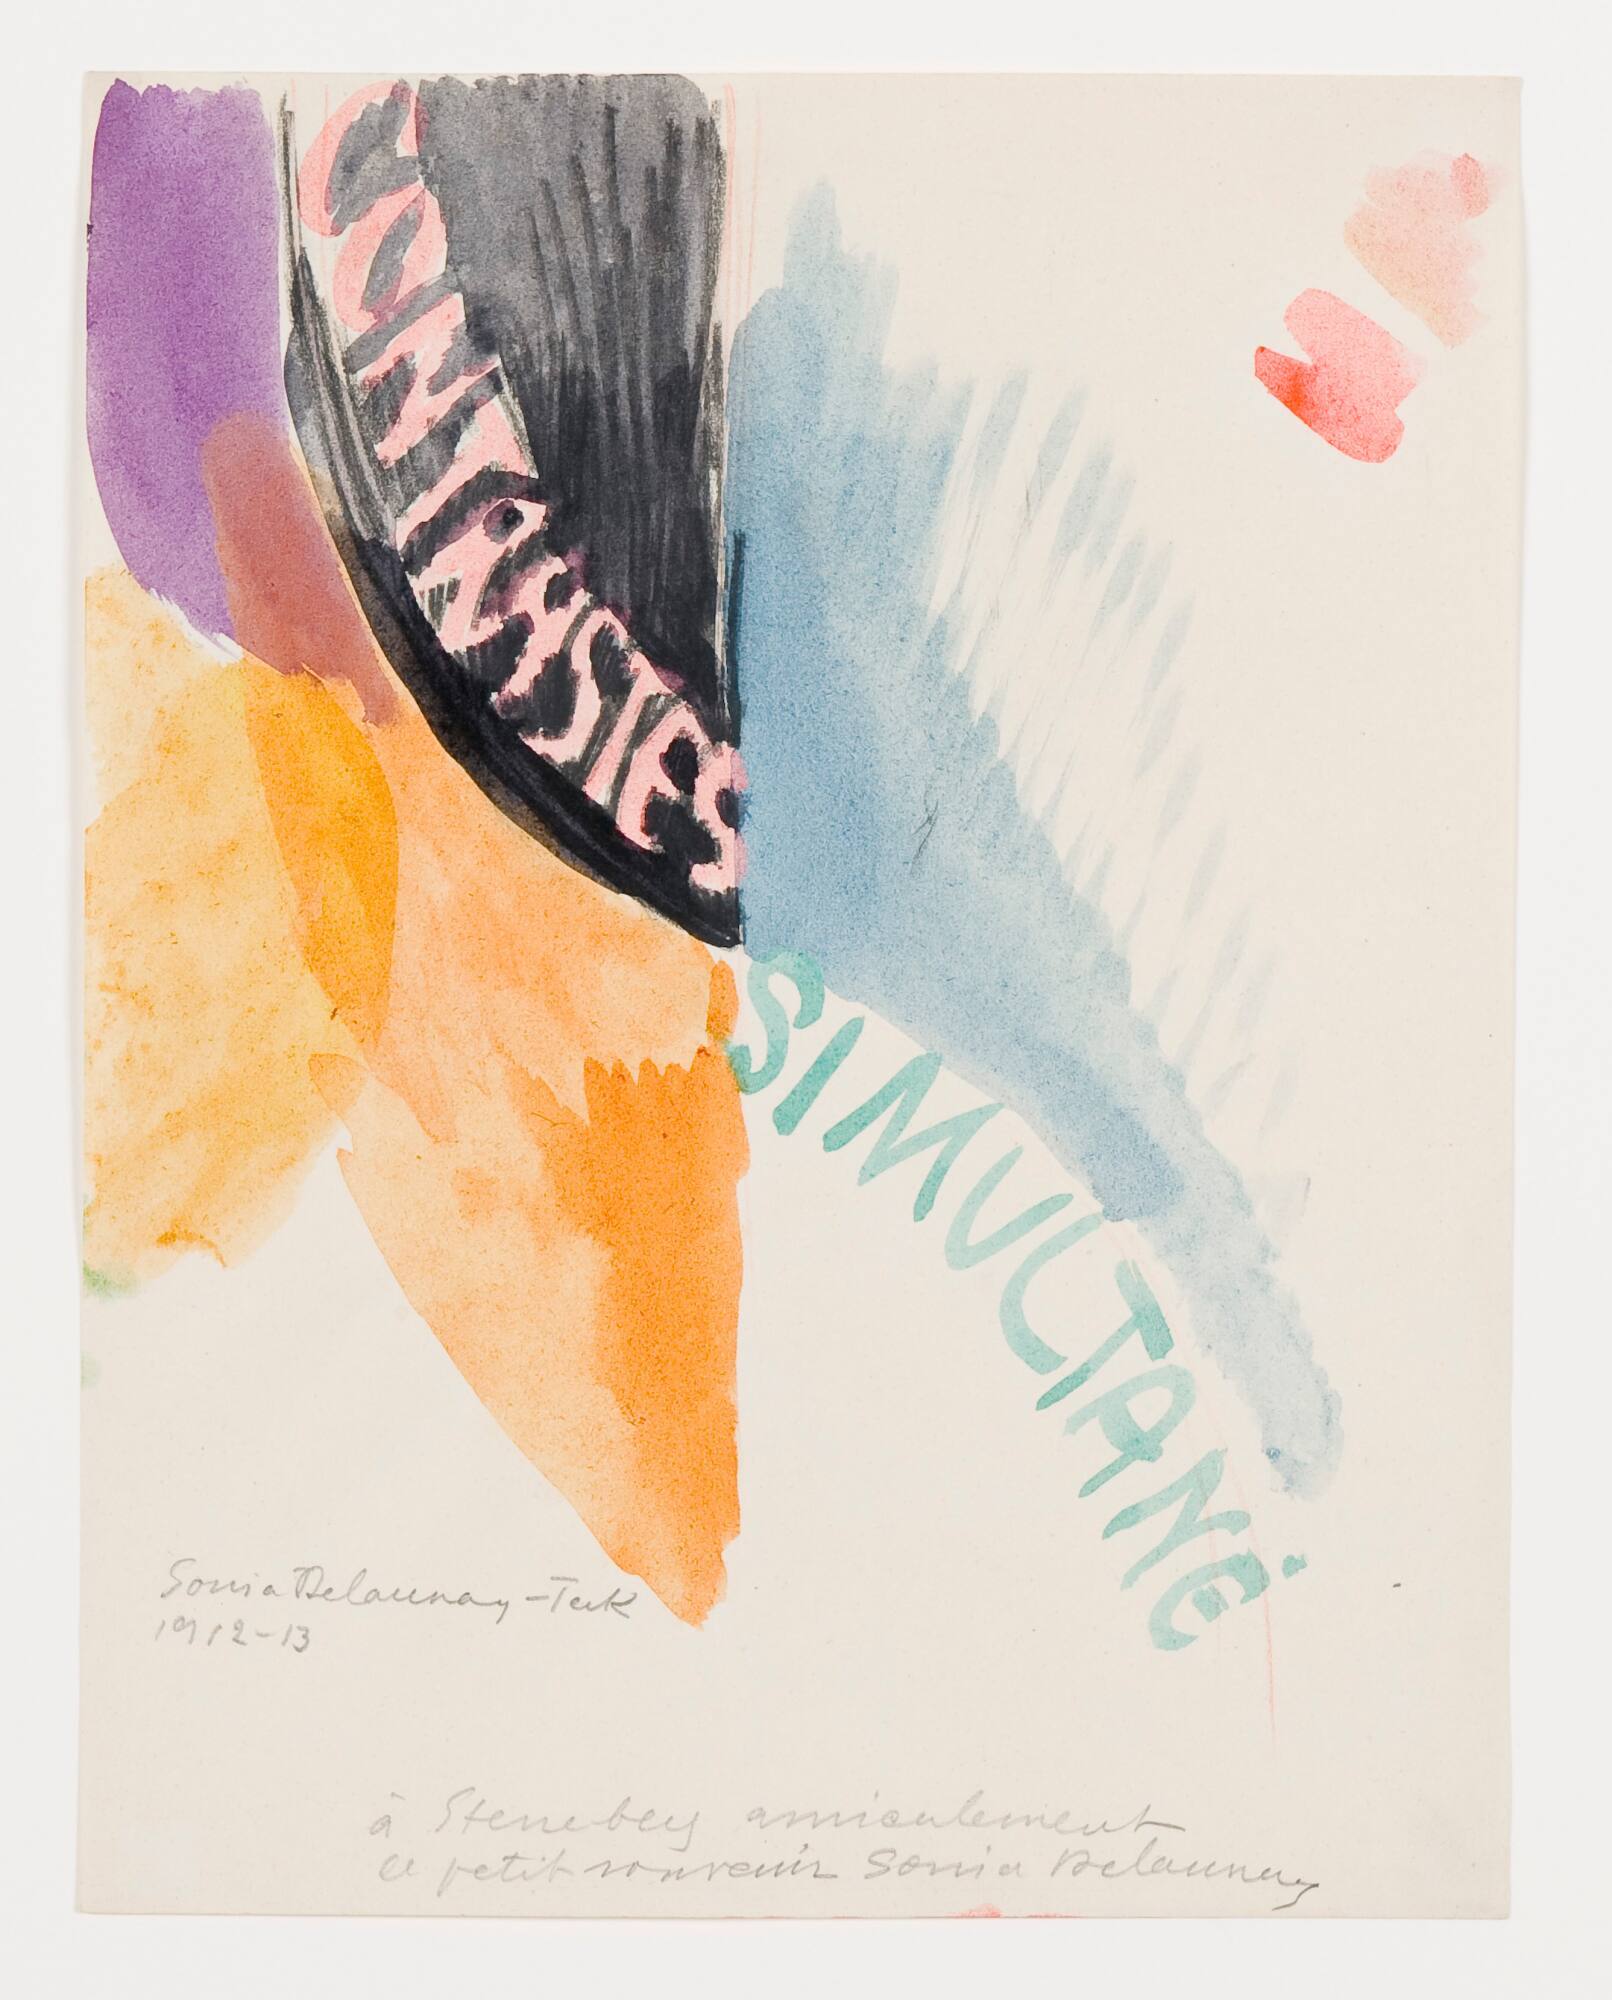 CONTRASTES
SIMULTANÉ
Sonia Delaunay-Terk
1912-13
à Steneberg amicalement
ce petit souvenir Sonia Delaunay